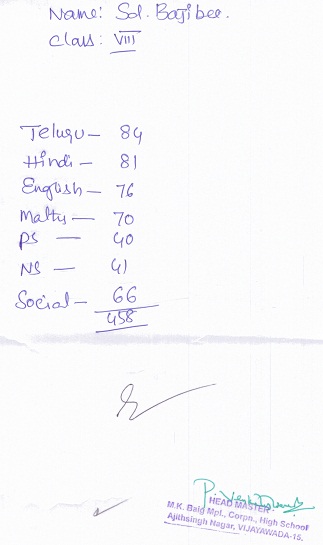 Name: Sd. Bajibee.
Class: VIII
Telugu — 84
Hindi — 81
English — 76
Maths — 70
PS — 40
NS — 41
Social — 66
458
HEAD MASTER
M.K. Baig Mpl., Corpn., High School
Ajithsingh Nagar, VIJAYAWADA-15.